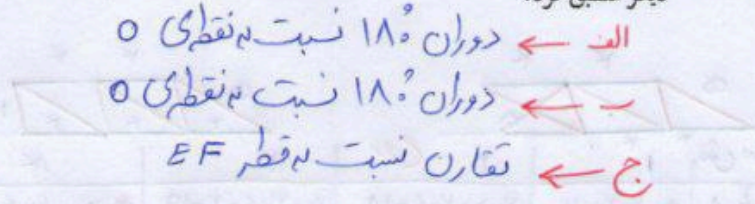 الف ← دوران ۱۸۰° نسبت به نقطه‌ی O
ب ← دوران ۱۸۰° نسبت به نقطه‌ی O
ج ← تقارن نسبت به قطر EF